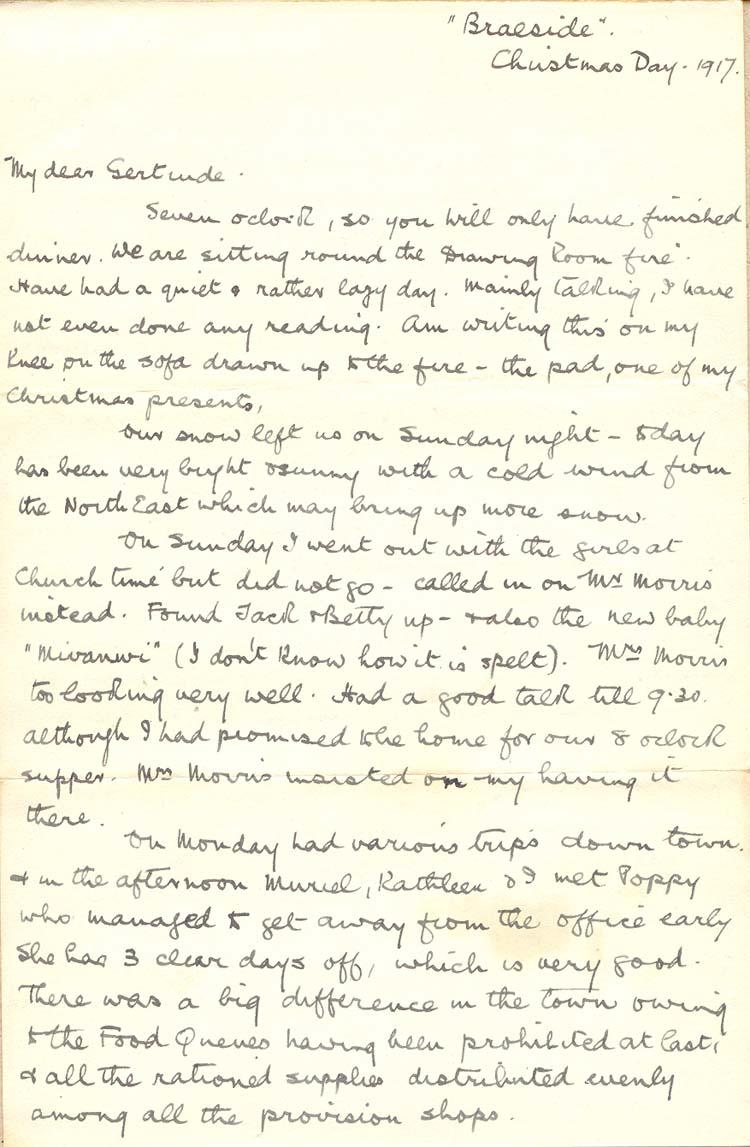 "Braeside".
Christmas Day. 1917.
My dear Gertrude.
Seven oclock, so you will only have finished
dinner. We are sitting round the Drawing Room fire.
Have had a quiet & rather lazy day. Mainly talking, I have
not even done any reading. Am writing this on my
knee on the sofa drawn up to the fire - the pad, one of my
Christmas presents,
Our snow left us on Sunday night - today
has been very bright & sunny with a cold wind from
the North East which may bring up more snow.
On Sunday I went out with the girls at
Church time but did not go - called in on Mrs Morris
instead. Found Jack & Betty up - & also the new baby
"Mivanwi" (I don't know how it is spelt). Mrs Morris
too looking very well. Had a good talk till 9.30.
although I had promised to be home for our 8 oclock
supper. Mrs Morris insisted on my having it
there.
On Monday had various trips down town.
& in the afternoon Muriel, Kathleen & I met Poppy
who managed to get away from the office early
She has 3 clear days off, which is very good.
There was a big difference in the town owing
to the Food Queues having been prohibited at last,
& all the rationed supplies distributed evenly
among all the provision shops.